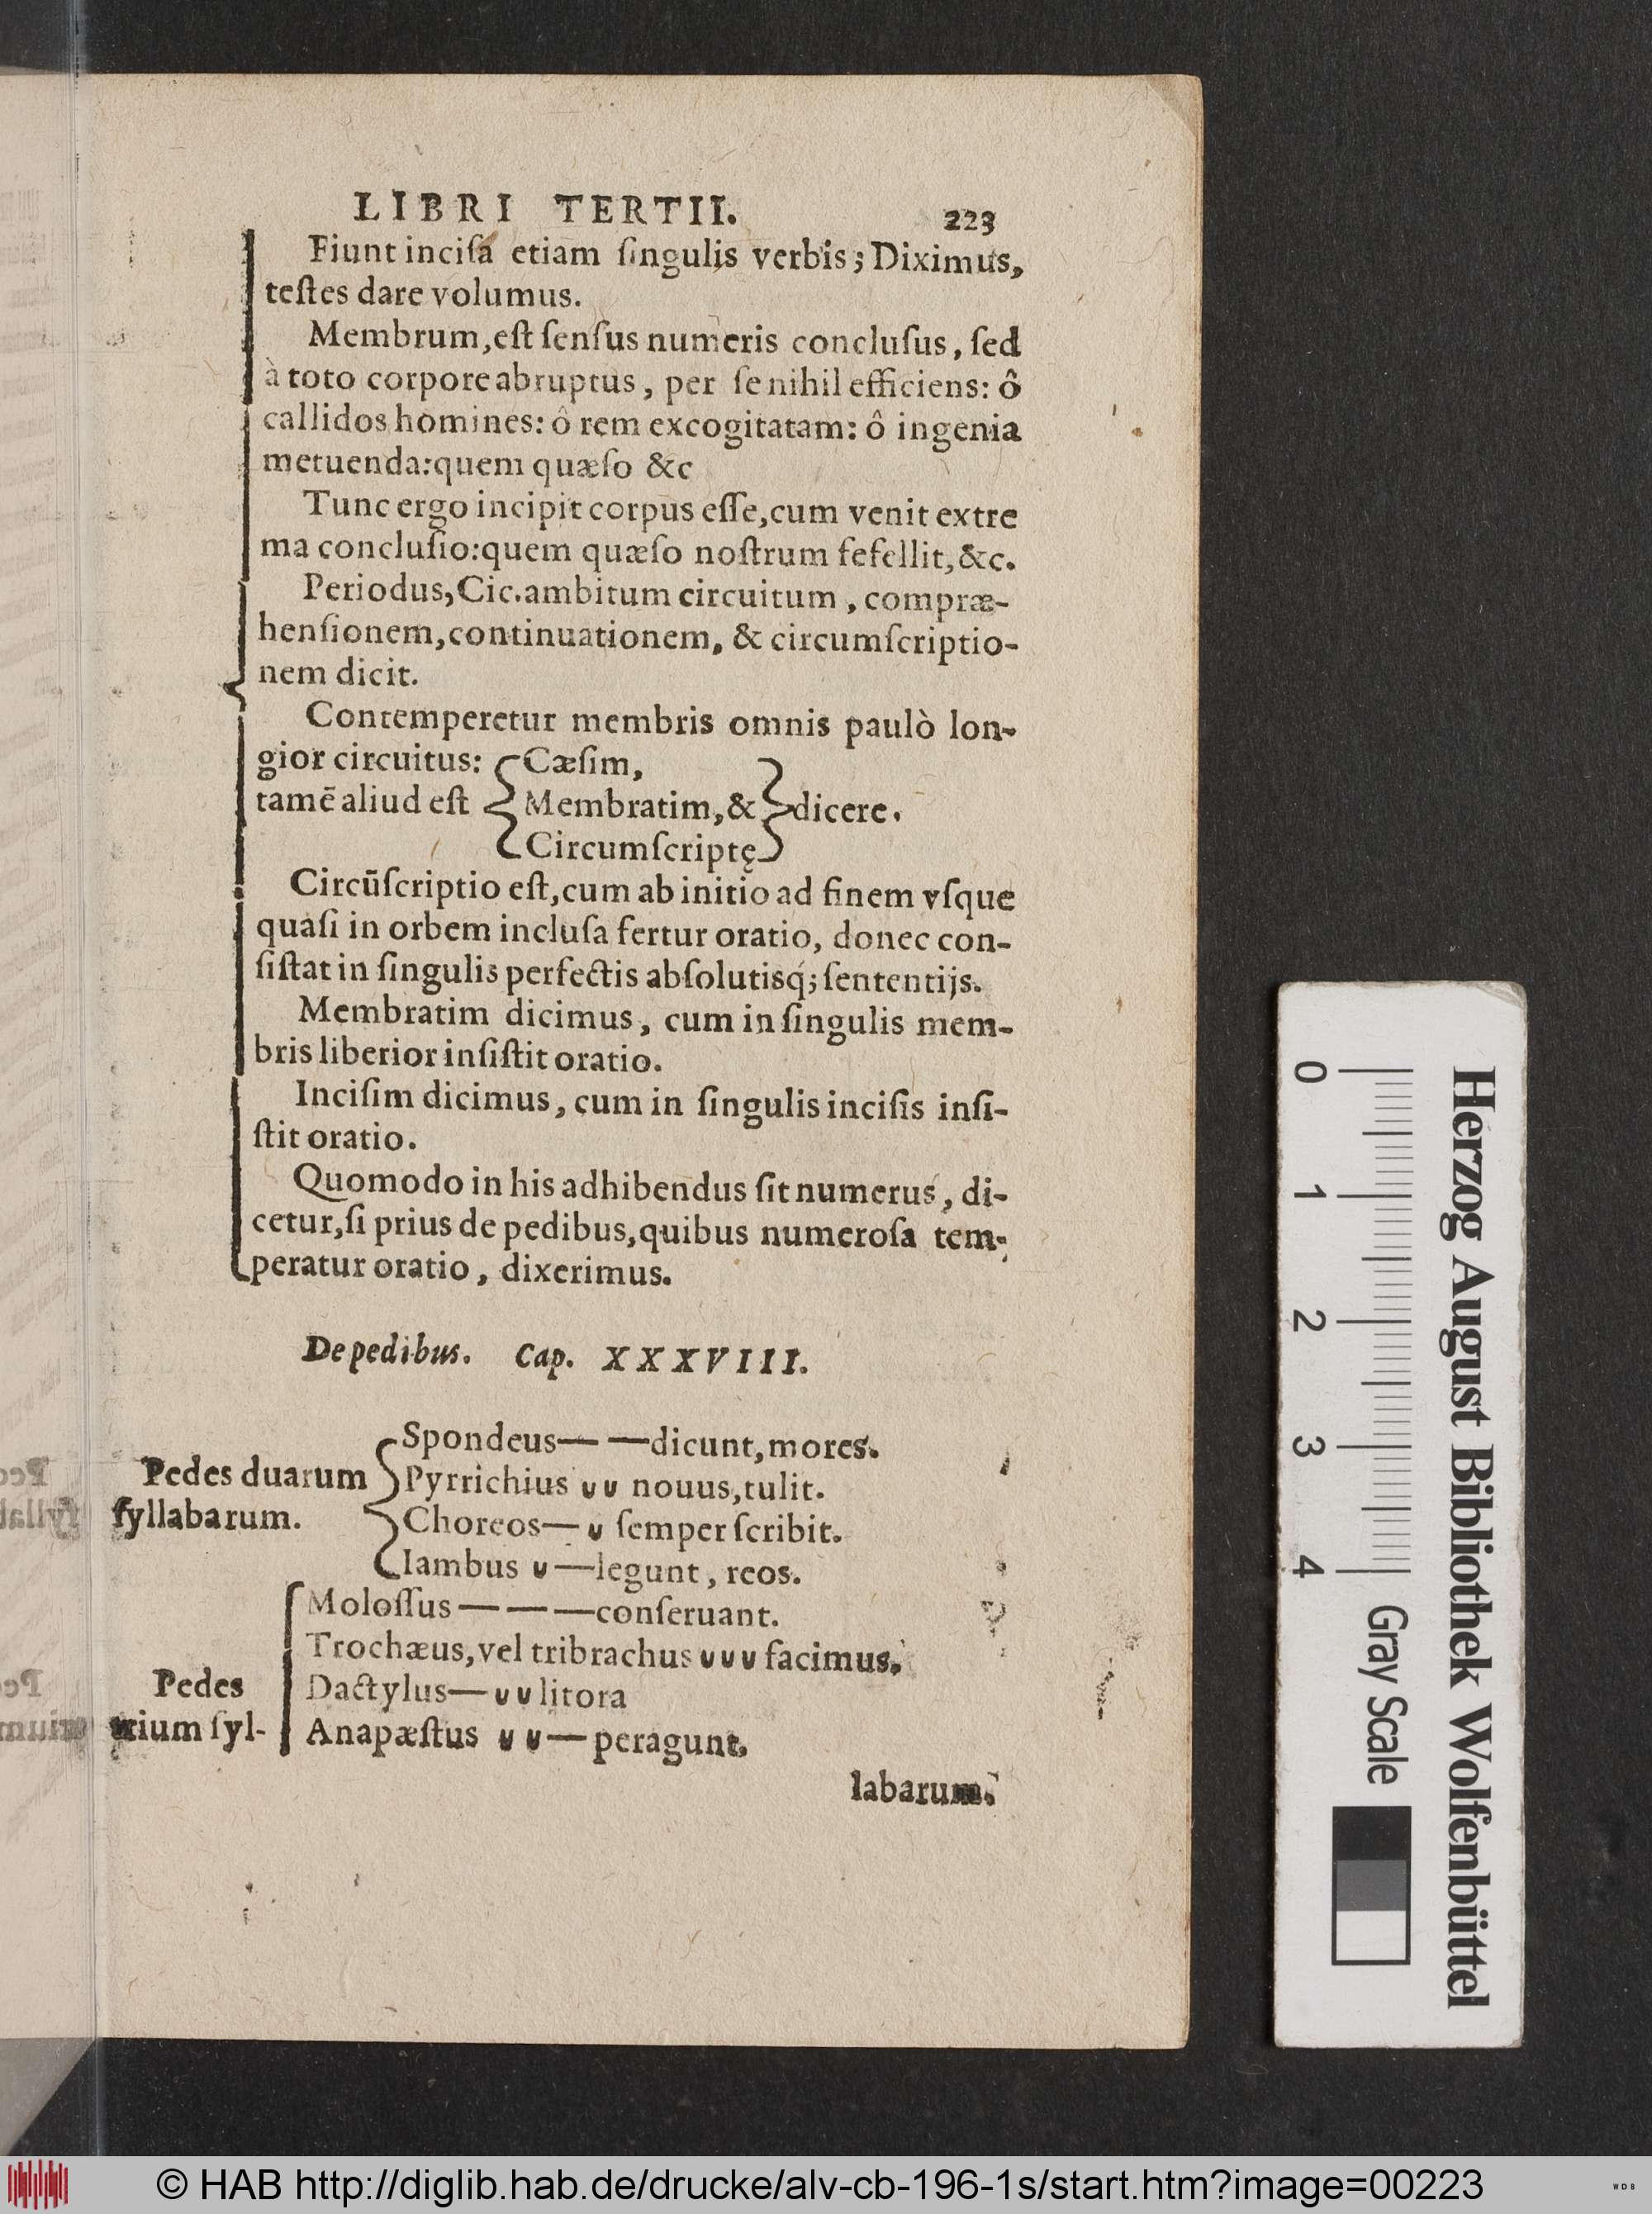 LIBRI TERTII. 223
Fiunt inciſa etiam ſingulis verbis; Diximus,
teſtes dare volumus.
Membrum, eſt ſenſus numeris concluſus, ſed
à toto corpore abruptus, per ſe nihil efficiens: ô
callidos homines: ô rem excogitatam: ô ingenia
metuenda: quem quæſo &c
Tunc ergo incipit corpus eſſe, cum venit extre
ma concluſio: quem quæſo noſtrum fefellit, &c.
Periodus, Cic. ambitum circuitum, compræ-
henſionem, continuationem, & circumſcriptio-
nem dicit.
Contemperetur membris omnis paulò lon-
gior circuitus: Cæſim,
tamē aliud eſt Membratim, & dicere.
Circumſcriptę
Circūſcriptio eſt, cum ab initio ad finem vſque
quaſi in orbem incluſa fertur oratio, donec con-
ſiſtat in ſingulis perfectis abſolutisq́; ſententijs.
Membratim dicimus, cum in ſingulis mem-
bris liberior inſiſtit oratio.
Inciſim dicimus, cum in ſingulis inciſis inſi-
ſtit oratio.
Quomodo in his adhibendus ſit numerus, di-
cetur, ſi prius de pedibus, quibus numeroſa tem-
peratur oratio, dixerimus.
De pedibus. Cap. XXXVIII.
Spondeus — — dicunt, mores.
Pedes duarum Pyrrichius υ υ nouus, tulit.
ſyllabarum. Choreos — υ ſemper ſcribit.
Iambus υ — legunt, reos.
Moloſſus — — — conſeruant.
Trochæus, vel tribrachus υ υ υ facimus.
Pedes Dactylus — υ υ litora
trium ſyl- Anapæſtus υ υ — peragunt.
labarum.
Herzog August Bibliothek Wolfenbüttel
0 1 2 3 4 Gray Scale
© HAB http://diglib.hab.de/drucke/alv-cb-196-1s/start.htm?image=00223
WDB